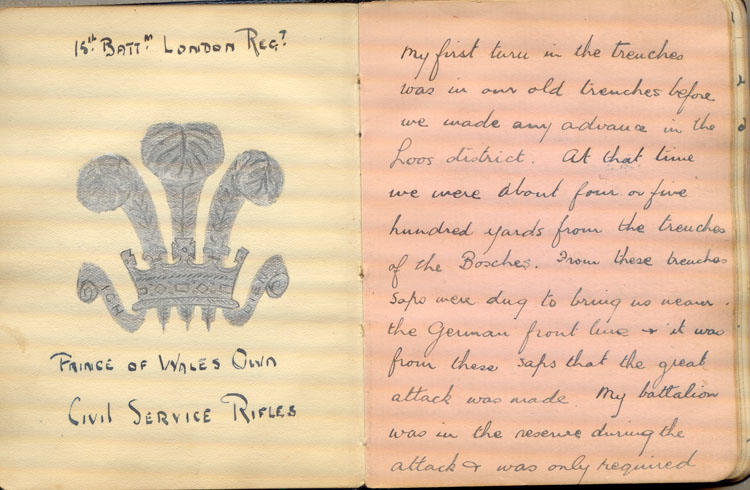 15th Battn London Regt
ICH
DIEN
Prince of Wales Own
Civil Service Rifles
My first turn in the trenches
was in our old trenches before
we made any advance in the
Loos district. At that time
we were about four or five
hundred yards from the trenches
of the Bosches. From these trenches
saps were dug to bring us nearer
the German front line & it was
from these saps that the great
attack was made My battalion
was in the reserve during the
attack & was only required